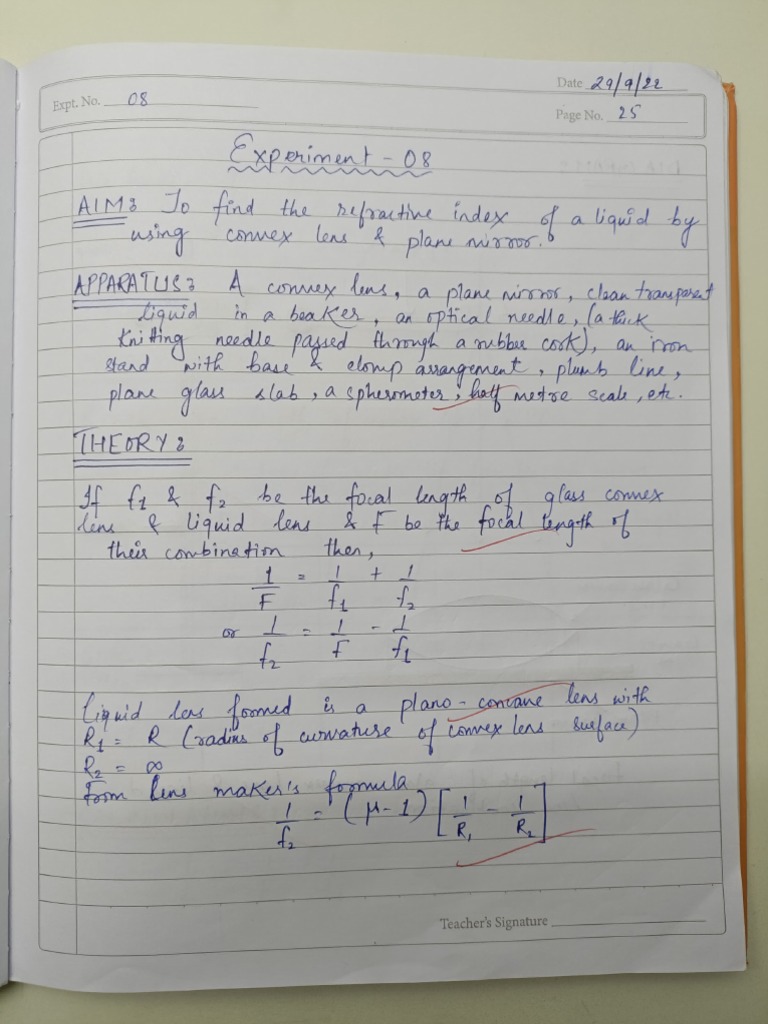 Date 29/9/22
Expt. No. 08
Page No. 25
Experiment - 08
AIM: To find the refractive index of a liquid by
using convex lens & plane mirror.
APPARATUS: A convex lens, a plane mirror, clean transparent
liquid in a beaker, an optical needle, (a thick
knitting needle passed through a rubber cork), an iron
stand with base & clamp arrangement, plumb line,
plane glass slab, a spherometer, half metre scale, etc.
THEORY:
If f1 & f2 be the focal length of glass convex
lens & liquid lens & F be the focal length of
their combination then,
1/F = 1/f1 + 1/f2
or 1/f2 = 1/F - 1/f1
Liquid lens formed is a plano-concave lens with
R1 = R (radius of curvature of convex lens surface)
R2 = ∞
From lens maker's formula
1/f2 = (μ-1) [1/R1 - 1/R2]
Teacher's Signature